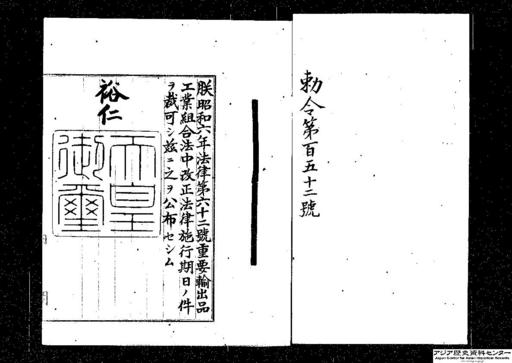 勅令第百五十二號
朕昭和六年法律第六十二號重要輸出品
工業組合法中改正法律施行期日ノ件
ヲ裁可シ玆ニ之ヲ公布セシム
裕仁
天皇
御璽
アジア歴史資料センター
Japan Center for Asian Historical Records